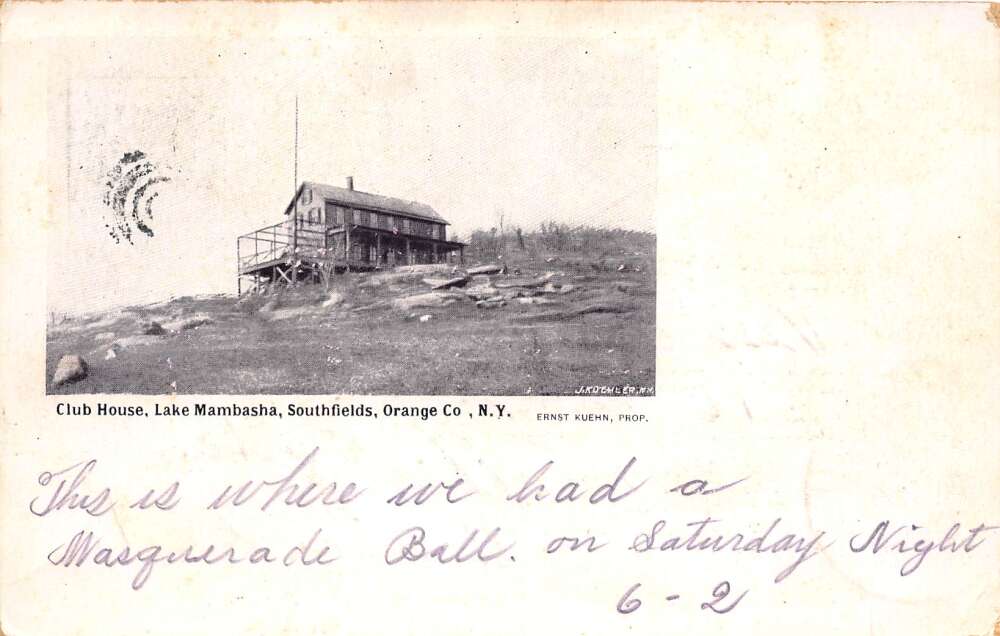 J. KOEHLER, N.Y.
Club House, Lake Mambasha, Southfields, Orange Co , N.Y.
ERNST KUEHN, PROP.
This is where we had a
Masquerade Ball. on Saturday Night
6 - 2